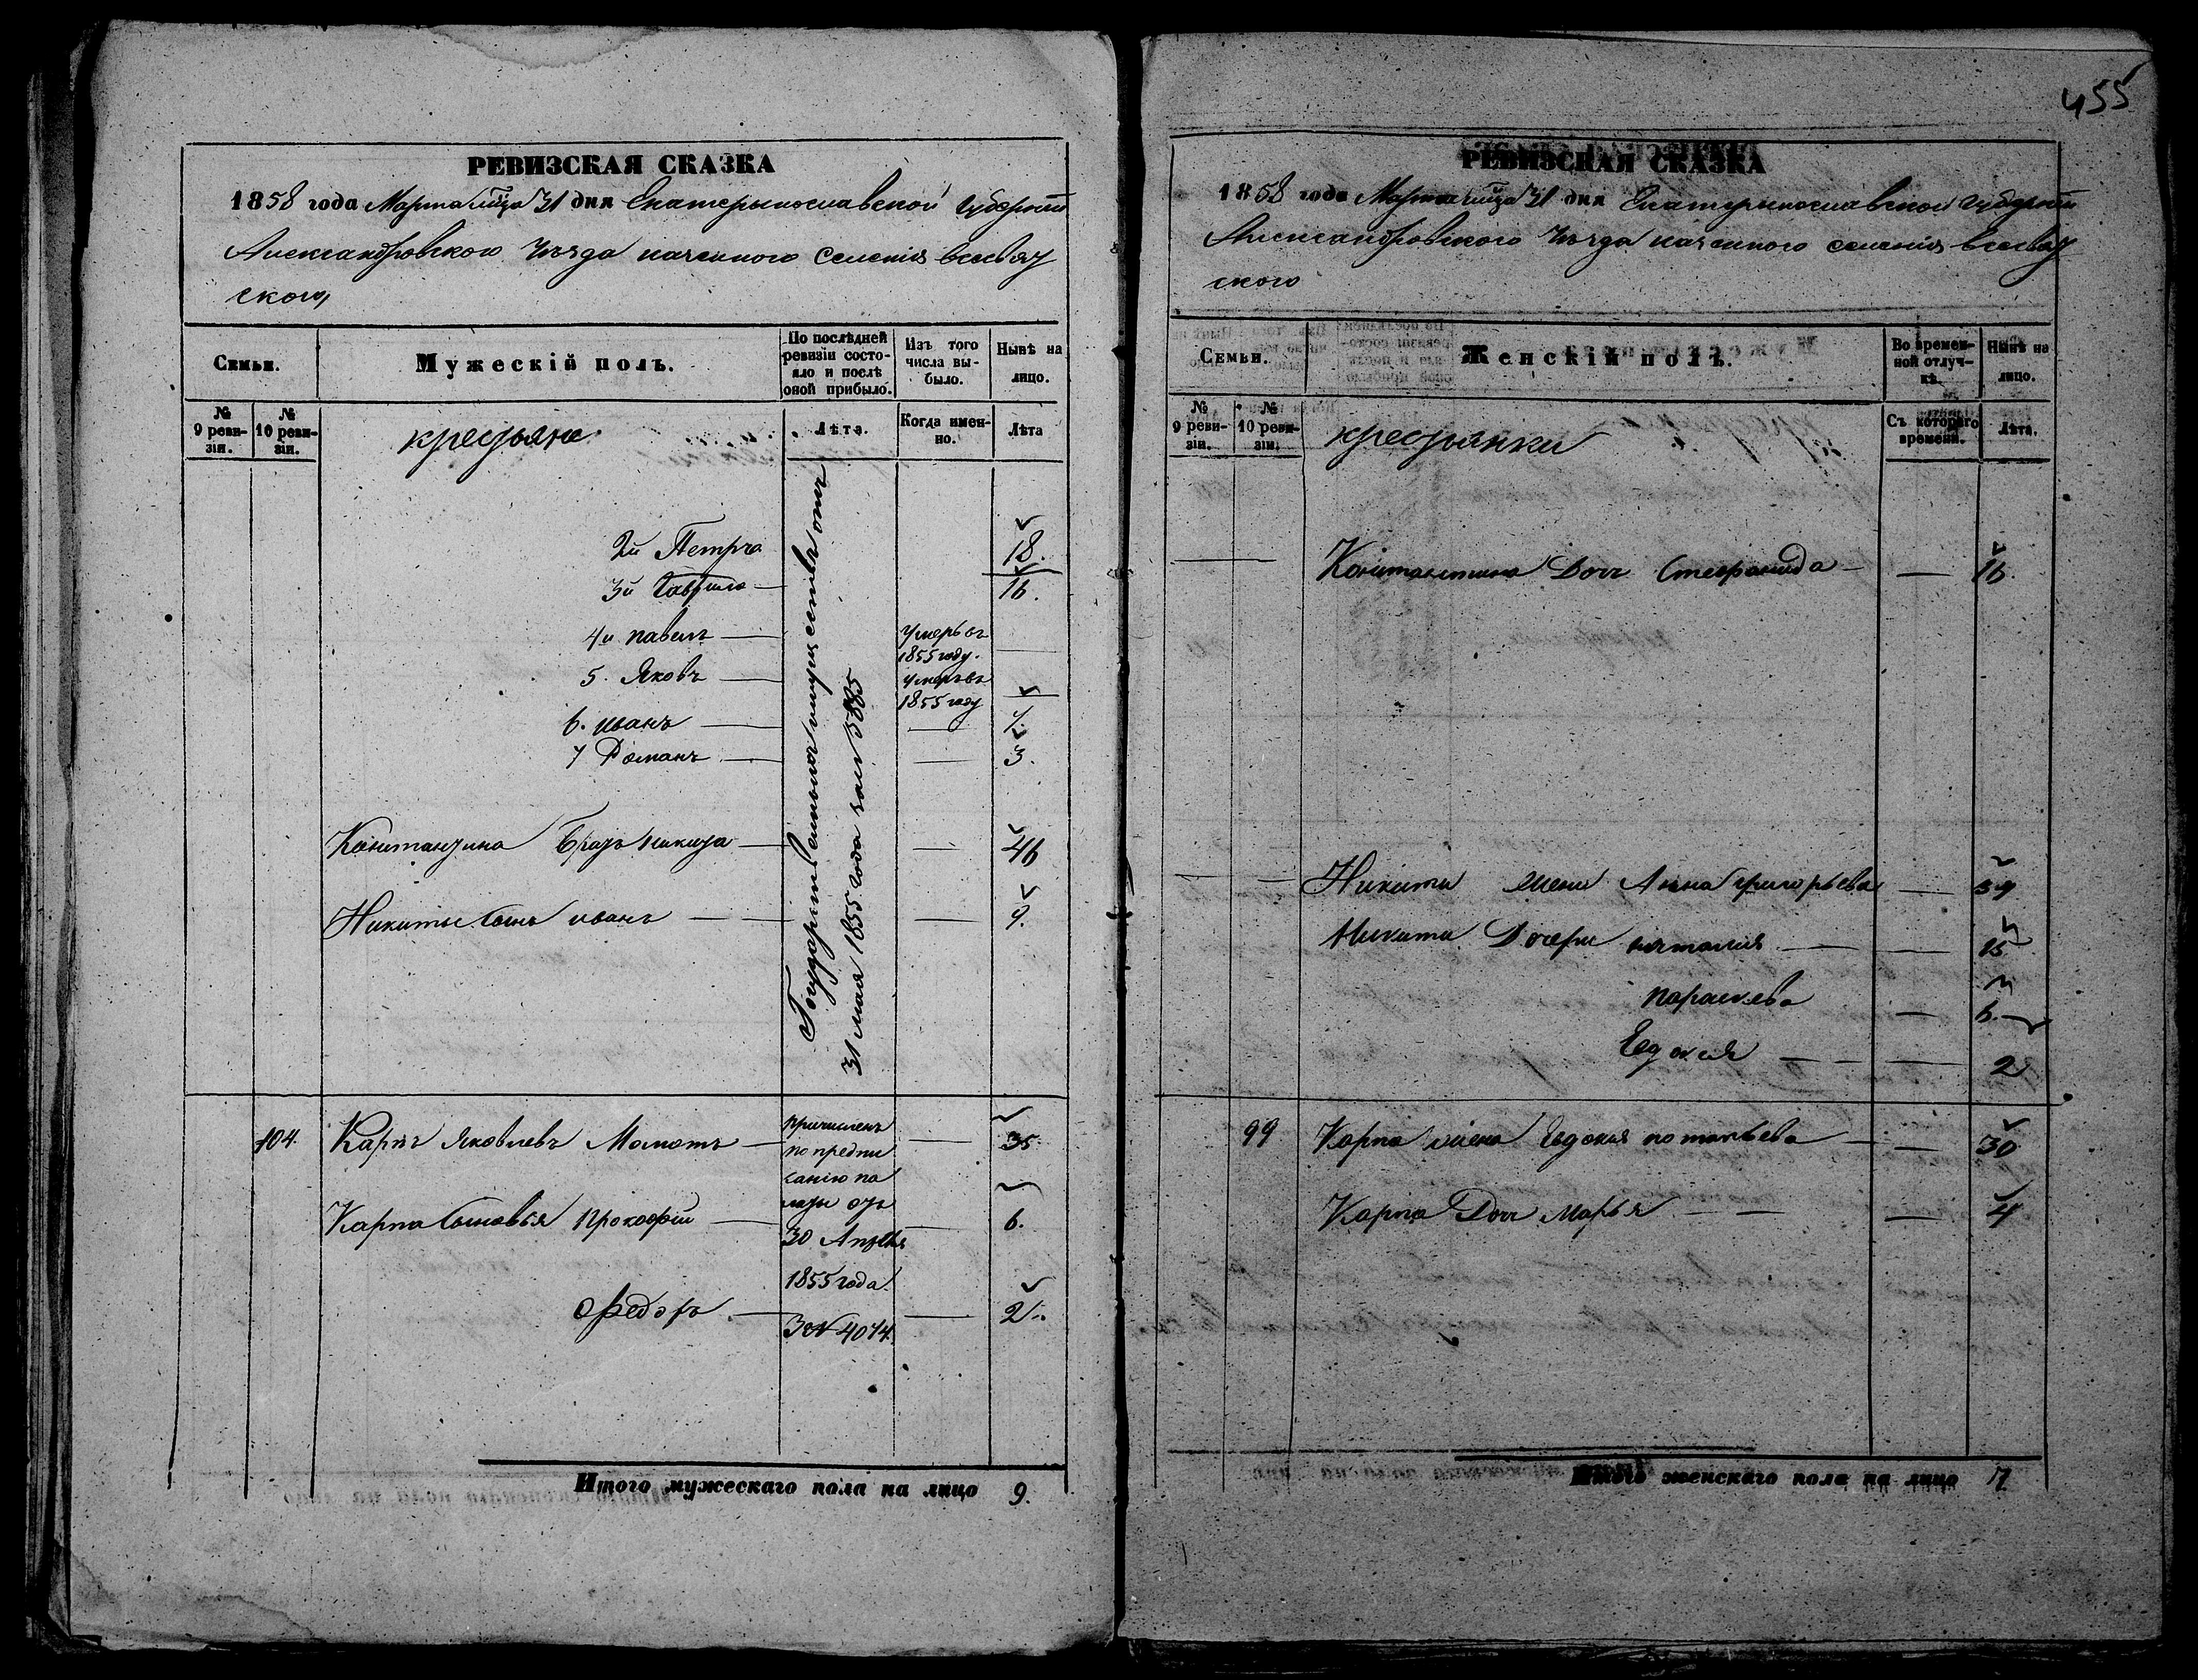 455
РЕВИЗСКАЯ СКАЗКА
1858 года Марта мца 31 дня Екатеринославской губернии
Александровского уѣзда казенного селенія всесвят
ского,
Семьи.
Мужескій полъ.
По послѣдней ревизіи состояло и послѣ оной прибыло.
Изъ того числа выбыло.
Нынѣ на лицо.
№ 9 ревизіи.
№ 10 ревизіи.
крестьяне
Лѣта.
Когда именно.
Лѣта
2й Петръ 18.
3й Гаврило 16.
4й павелъ умеръ въ 1855 году.
5. Яковъ умеръ въ 1855 году
6. иванъ 7.
7 Романъ 3.
Константина братъ никита 46
Никиты сынъ иванъ 9.
Государственныхъ имуществъ отъ
31 мая 1855 года за № 5885
104. Карпъ Яковлевъ Мамотъ 35
причисленъ
по предпи
санію па
латы отъ
30 Апрѣля
1855 года
За № 4074.
Карпа сыновья Прокофій 6.
Федоръ 2.
Итого мужескаго пола на лицо 9.
РЕВИЗСКАЯ СКАЗКА
1858 года Марта мца 31 дня Екатеринославской губернии
Александровского уѣзда казенного селенія всесвят
ского
Семьи.
Женскій полъ.
Во временной отлучкѣ.
Нынѣ на лицо.
№ 9 ревизіи.
№ 10 ревизіи.
крестьянки
Съ котораго времени.
Лѣта.
Константина Дочь Стефанида 16.
Никиты жена Анна григорьева 39
Никиты Дочери наталия 15
параскева 6.
Евдокия 2
99 Карпа жена Евдокия потапьева 30
Карпа Дочь марья 4
Итого женскаго пола на лицо 7